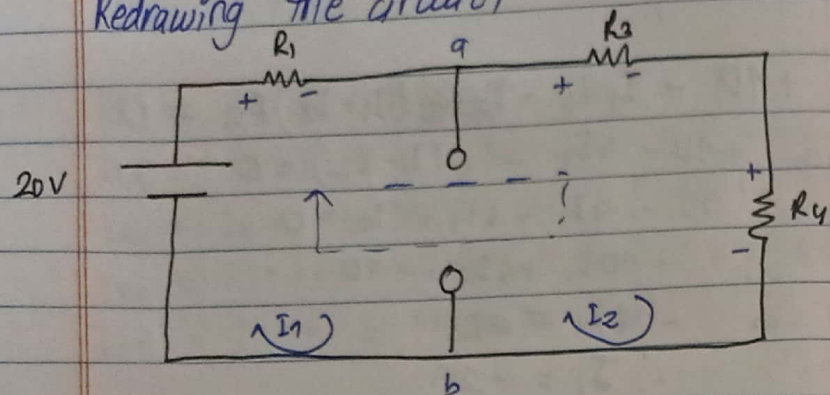 Redrawing the circuit
R1 a R3
+ - + -
20V
+
R4
-
I1 I2
b